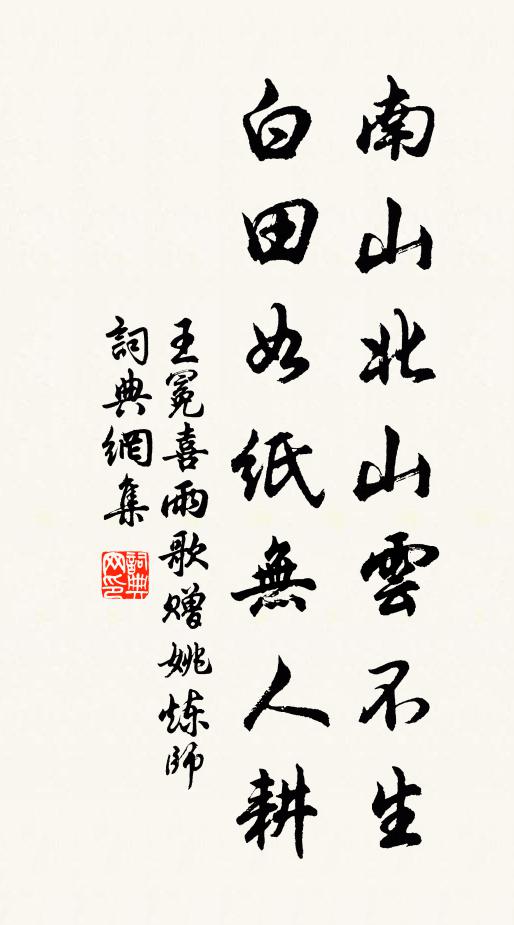 南山北山雲不生
白田如紙無人耕
王冕喜雨歌赠姚炼師
詞典網集
詞典
网印